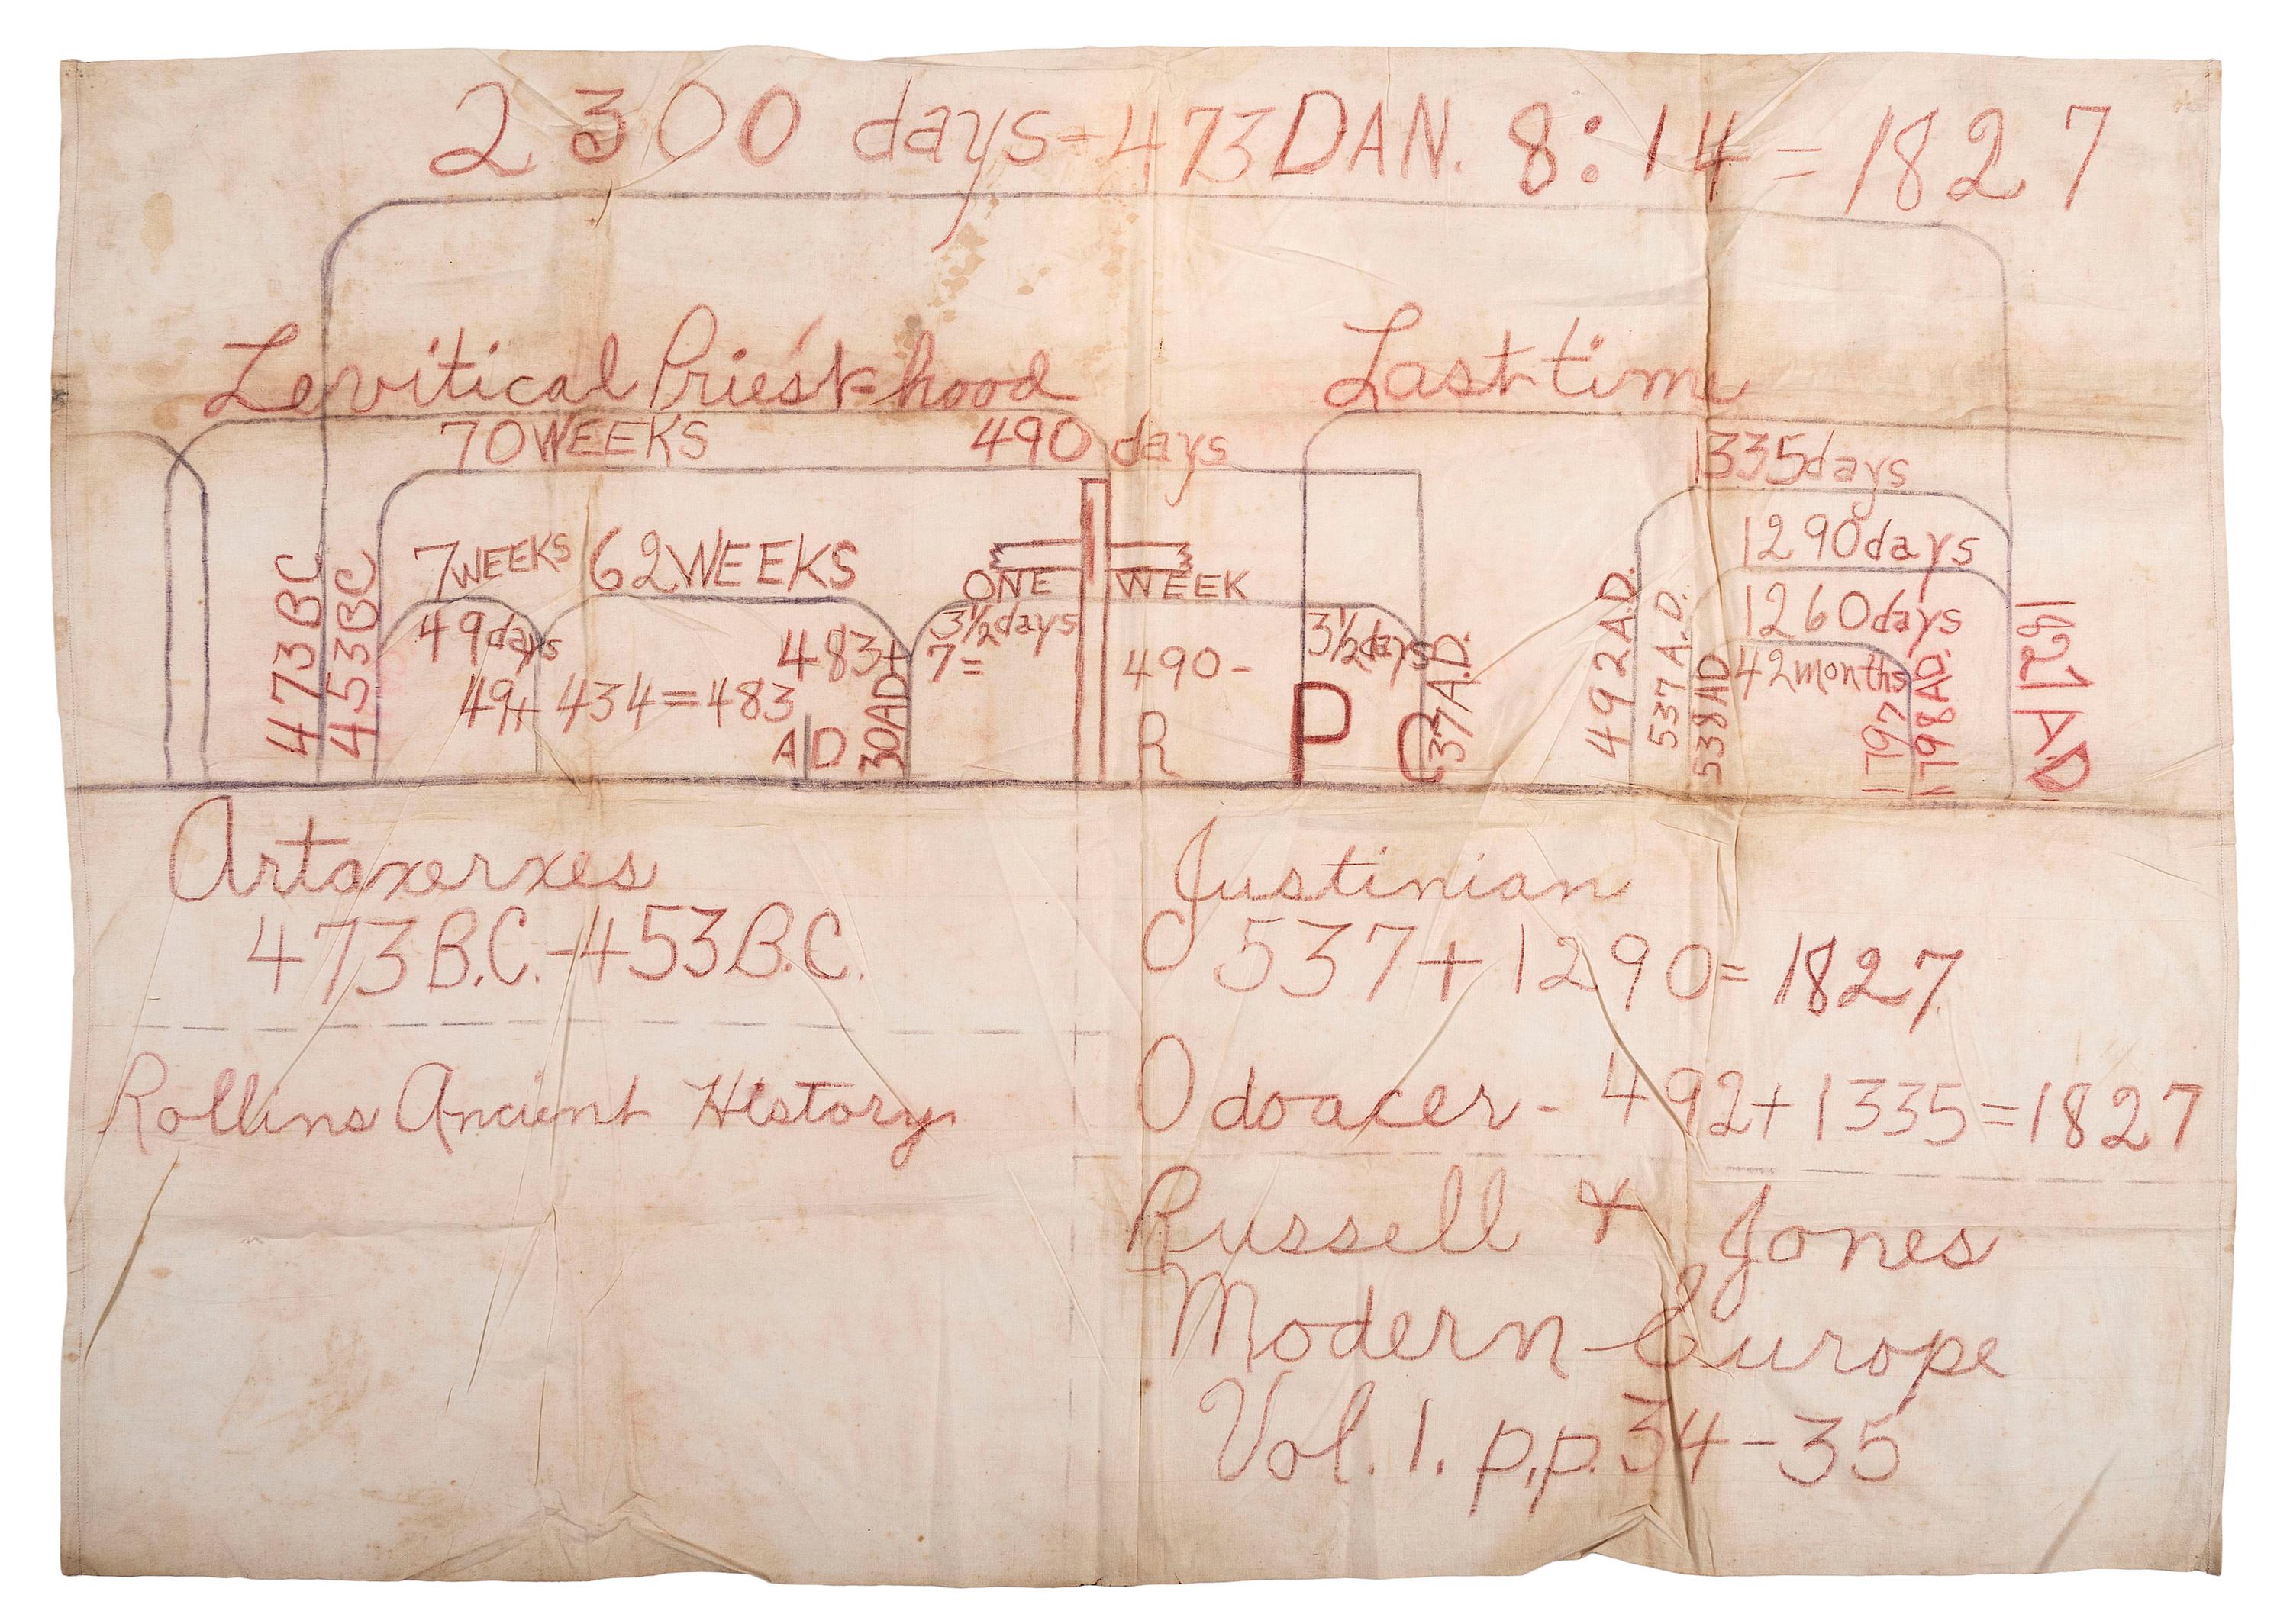 2300 days-473 DAN. 8:14 = 1827
Levitical Priest-hood
Last-time
70 WEEKS 490 days
1335 days
1290 days
1260 days
42 months
7 WEEKS 62 WEEKS
ONE WEEK
49 days
483+
3½ days
7=
490-
3½ days
49+ 434=483
473 BC
453 BC
A D
30 AD
R
P
C
37 A.D.
492 A.D.
537 A.D.
538 AD
1797
1798 AD.
1827 AD
Artaxerxes
473 B.C.-453 B.C.
Rollins Ancient History
Justinian
537+1290= 1827
Odoacer - 492+1335=1827
Russell & Jones
Modern Europe
Vol. 1. p.p. 34-35